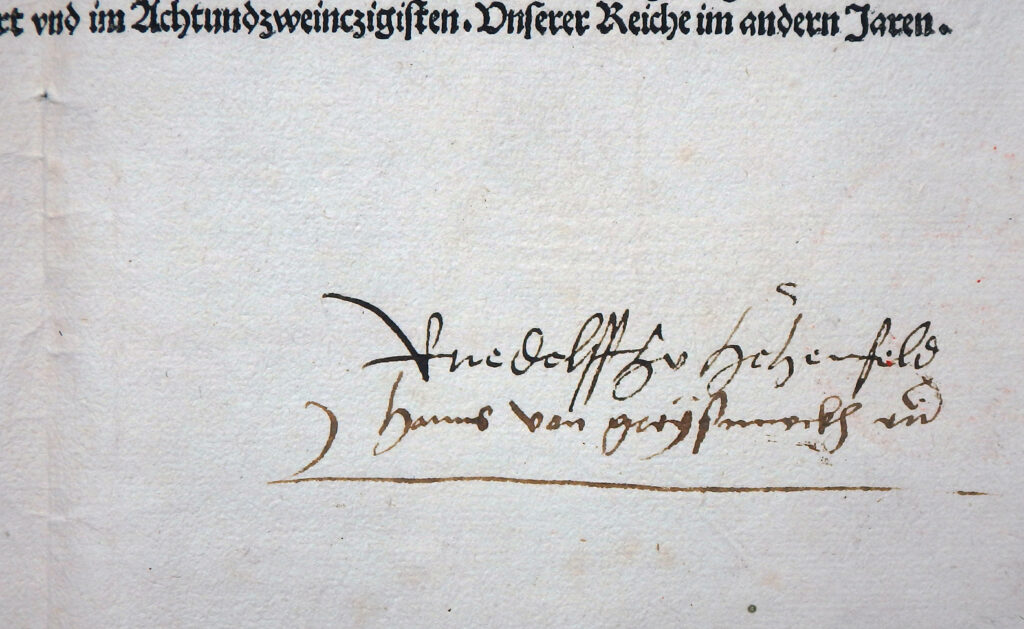 rt vnd im Achtundzweinczigisten. Vnserer Reiche im andern Jaren.
Ruedolff Hv Hohenfeld
Hanns von greyssneckh